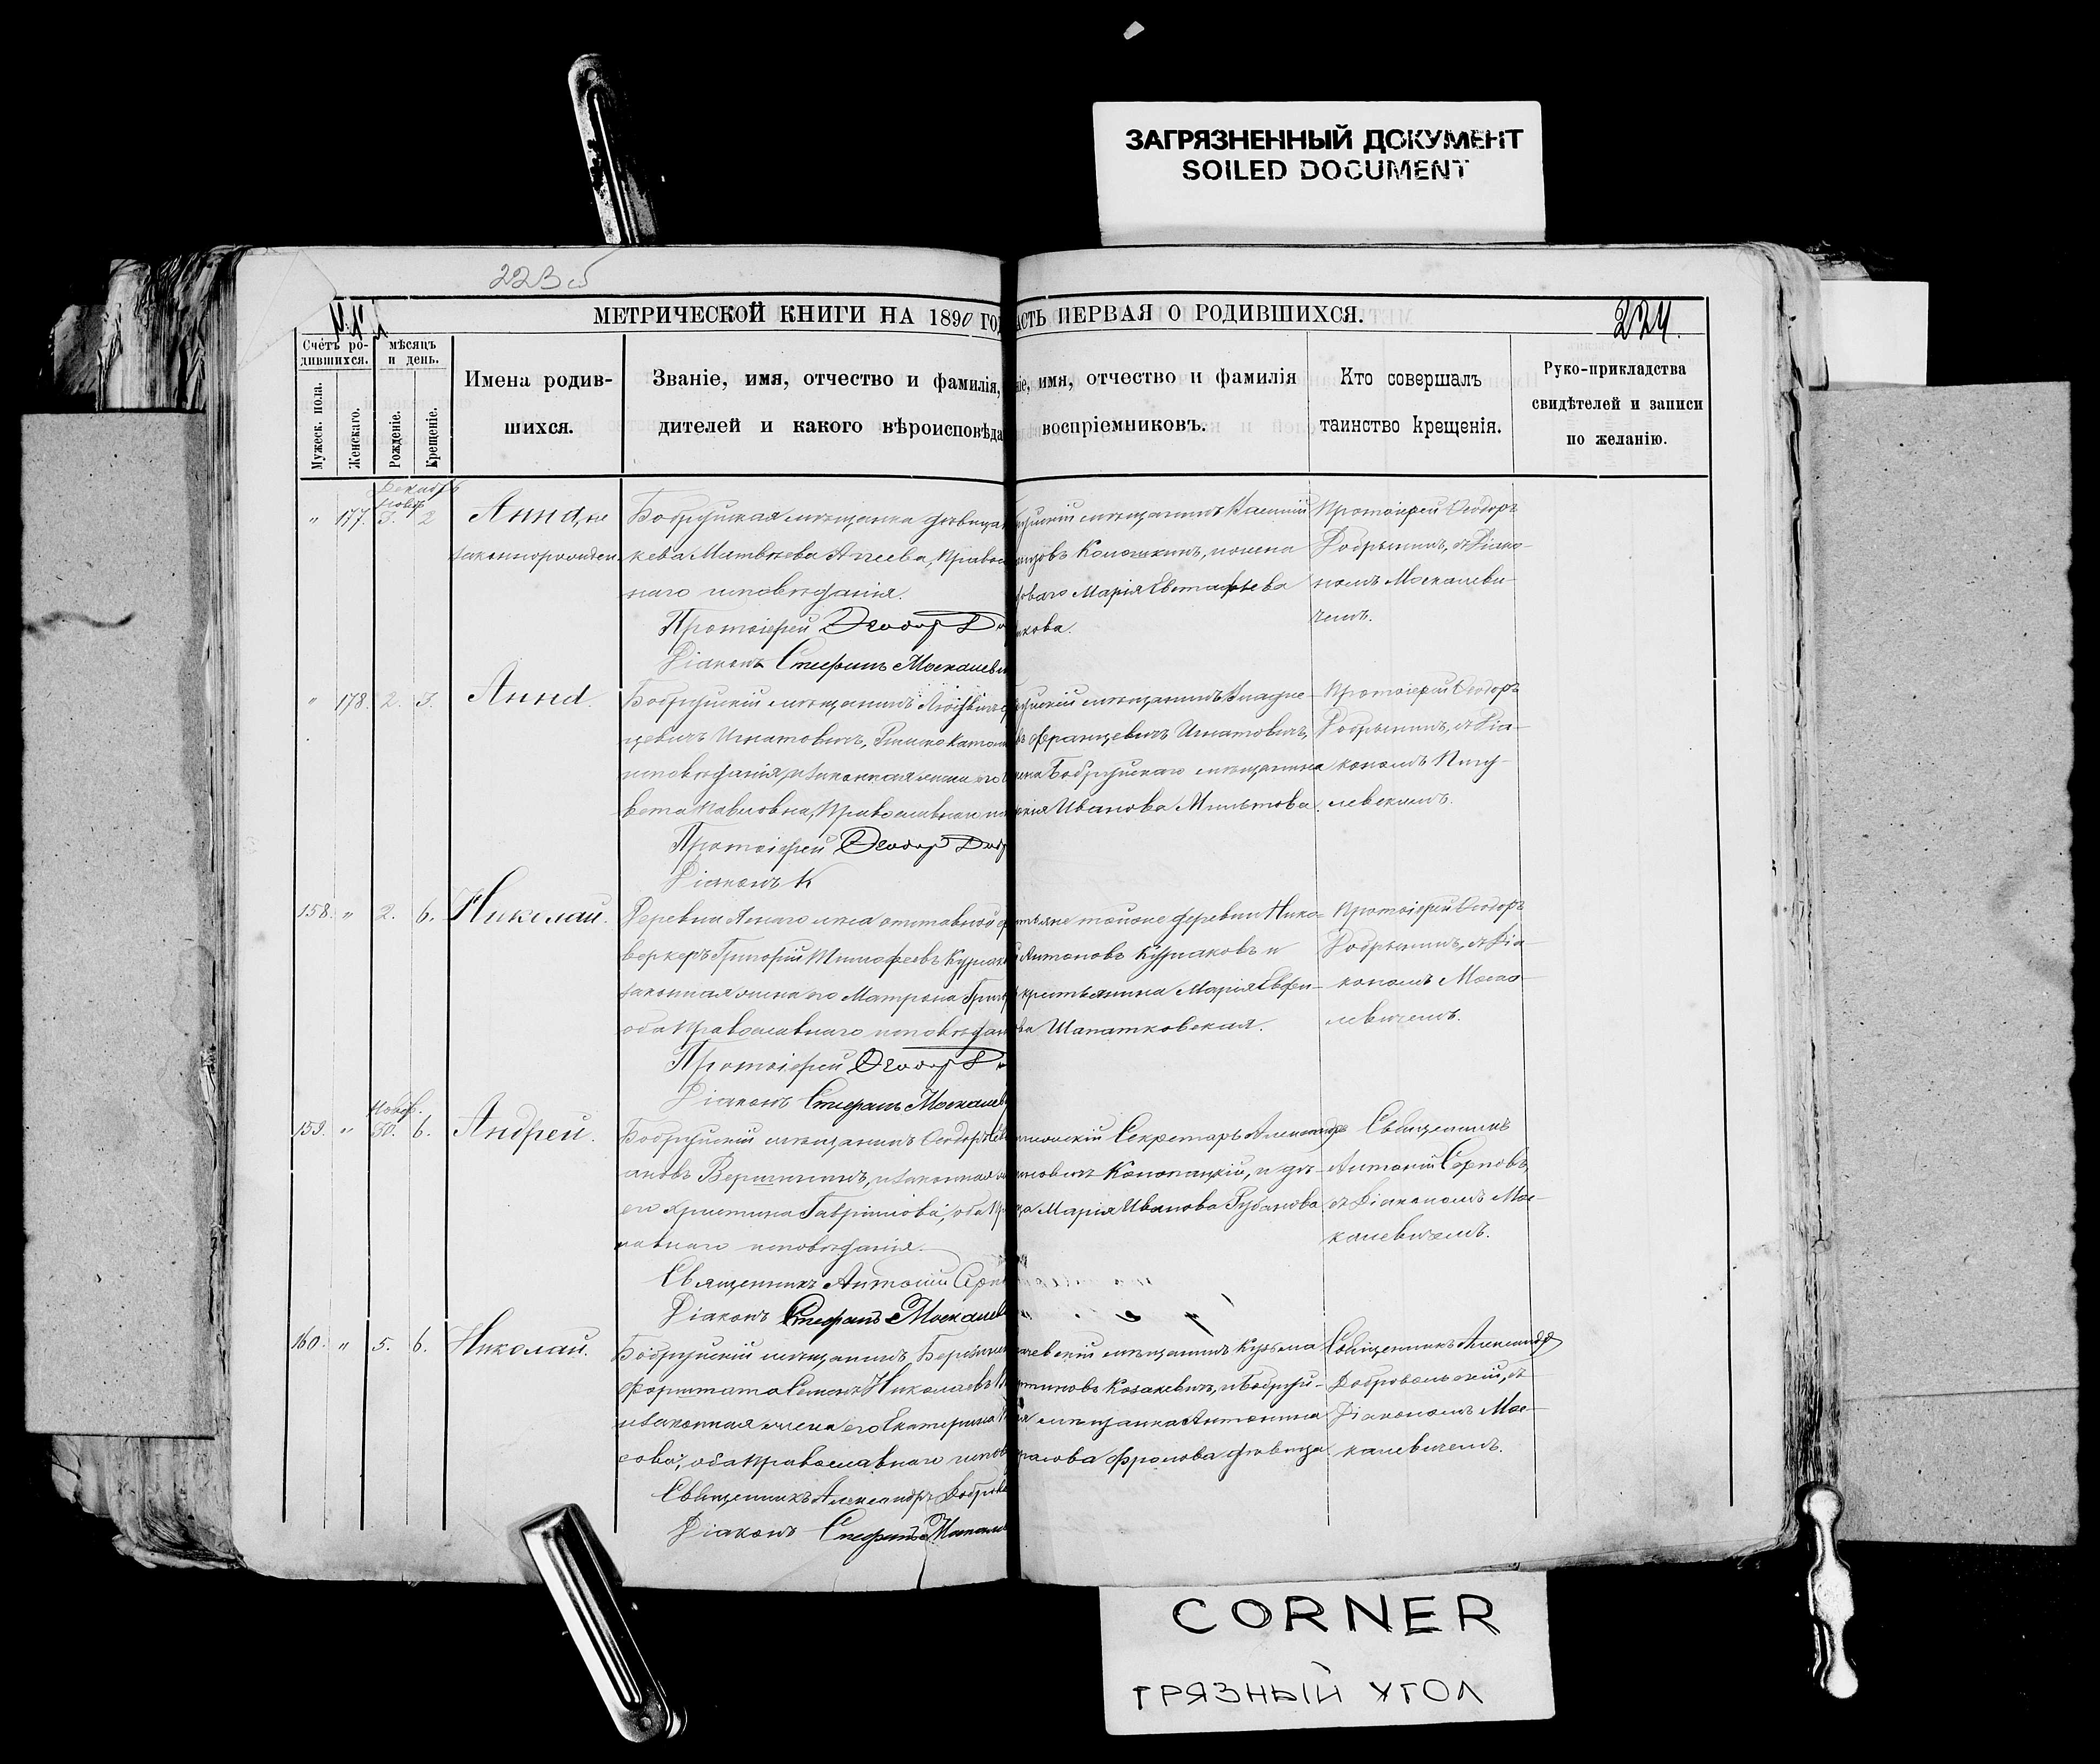 ЗАГРЯЗНЕННЫЙ ДОКУМЕНТ
SOILED DOCUMENT
223 об
224.
МЕТРИЧЕСКОЙ КНИГИ НА 1890 ГОД
АСТЬ ПЕРВАЯ О РОДИВШИХСЯ.
Счётъ ро-
дившихся.
Мужеск. пола.
Женскаго.
мѣсяцъ
и день.
Рожденіе.
Крещеніе.
Имена родив-
шихся.
Званіе, имя, отчество и фамилія,
дителей и какого вѣроисповѣда
ніе, имя, отчество и фамилія
воспріемниковъ.
Кто совершалъ
таинство крещенія.
Руко-прикладства
свидѣтелей и записи
по желанію.
Декабрь
Нояб.
" 177. 3. 2
Анна, не
законнорожден
Бобруйская мѣщанка дѣвица
Матвѣева Агеева, Правос
наго исповѣданія.
Протоіерей Ѳеодоръ До
Діаконъ Стефанъ Москалеви
руйскій мѣщанинъ Василій
Колошкинъ, и жена
Марія Евстафьева
кова.
Протоіерей Ѳеодоръ
Добрынинъ, съ Діако-
номъ Москалеви-
чемъ.
" 178. 2. 3.
Анна.
Бобруйскій мѣщанинъ Людвигъ
цевичъ Игнатовичъ, Римско Катол
исповѣданія, и законная жена его
вета Павловна, Православнаго
Протоіерей Ѳеодоръ Доб
Діаконъ К
руйскій мѣщанинъ Владис-
въ Францевичъ Игнатовичъ,
жена Бобруйскаго мѣщанина
Иванова Милютова.
Протоіерей Ѳеодоръ
Добрынинъ, съ Діа-
кономъ
левскимъ.
158. " 2. 6.
Николай.
Деревни отставной
веркеръ Григорій Тимофеевъ Курлак
законная жена его Матрона Григ
оба Православнаго исповѣдан
Протоіерей Ѳеодоръ До
Діаконъ Стефанъ Москалев
тьяне тойже деревни Нико-
й Антоновъ Курлаковъ и
крестьянина Марія Евфи-
ва Шапатковская.
Протоіерей Ѳеодоръ
Добрынинъ, съ Діа-
кономъ Моска-
левичемъ.
Нояб.
159. " 30. 6.
Андрей.
Бобруйскій мѣщанинъ Ѳеодоръ
ановъ Вершининъ, и законная
его Христина Гаврилова, оба Пр
лавнаго исповѣданія.
Священникъ Антоній Серп
Діаконъ Стефанъ Москалев
Секретарь Александръ
новичъ Конопацкій, и дѣ-
ца Марія Иванова Рубанова
Священникъ
Антоній Серповъ,
съ Діакономъ Мос-
калевичемъ.
160. " 5. 6.
Николай.
Бобруйскій мѣщанинъ
Семенъ Николаевъ
и законная жена его Екатерина
сова, оба Православнаго испов
Священникъ Александръ Доброво
Діаконъ Стефанъ Москалев
чевскій мѣщанинъ Кузьма
ртиновъ Козакевичъ, и Бобруй-
я мѣщанка Антонина
Фролова дѣвица.
Священникъ Александръ
Добровольскій, съ
Діакономъ Мос-
калевичемъ.
CORNER
ГРЯЗНЫЙ УГОЛ